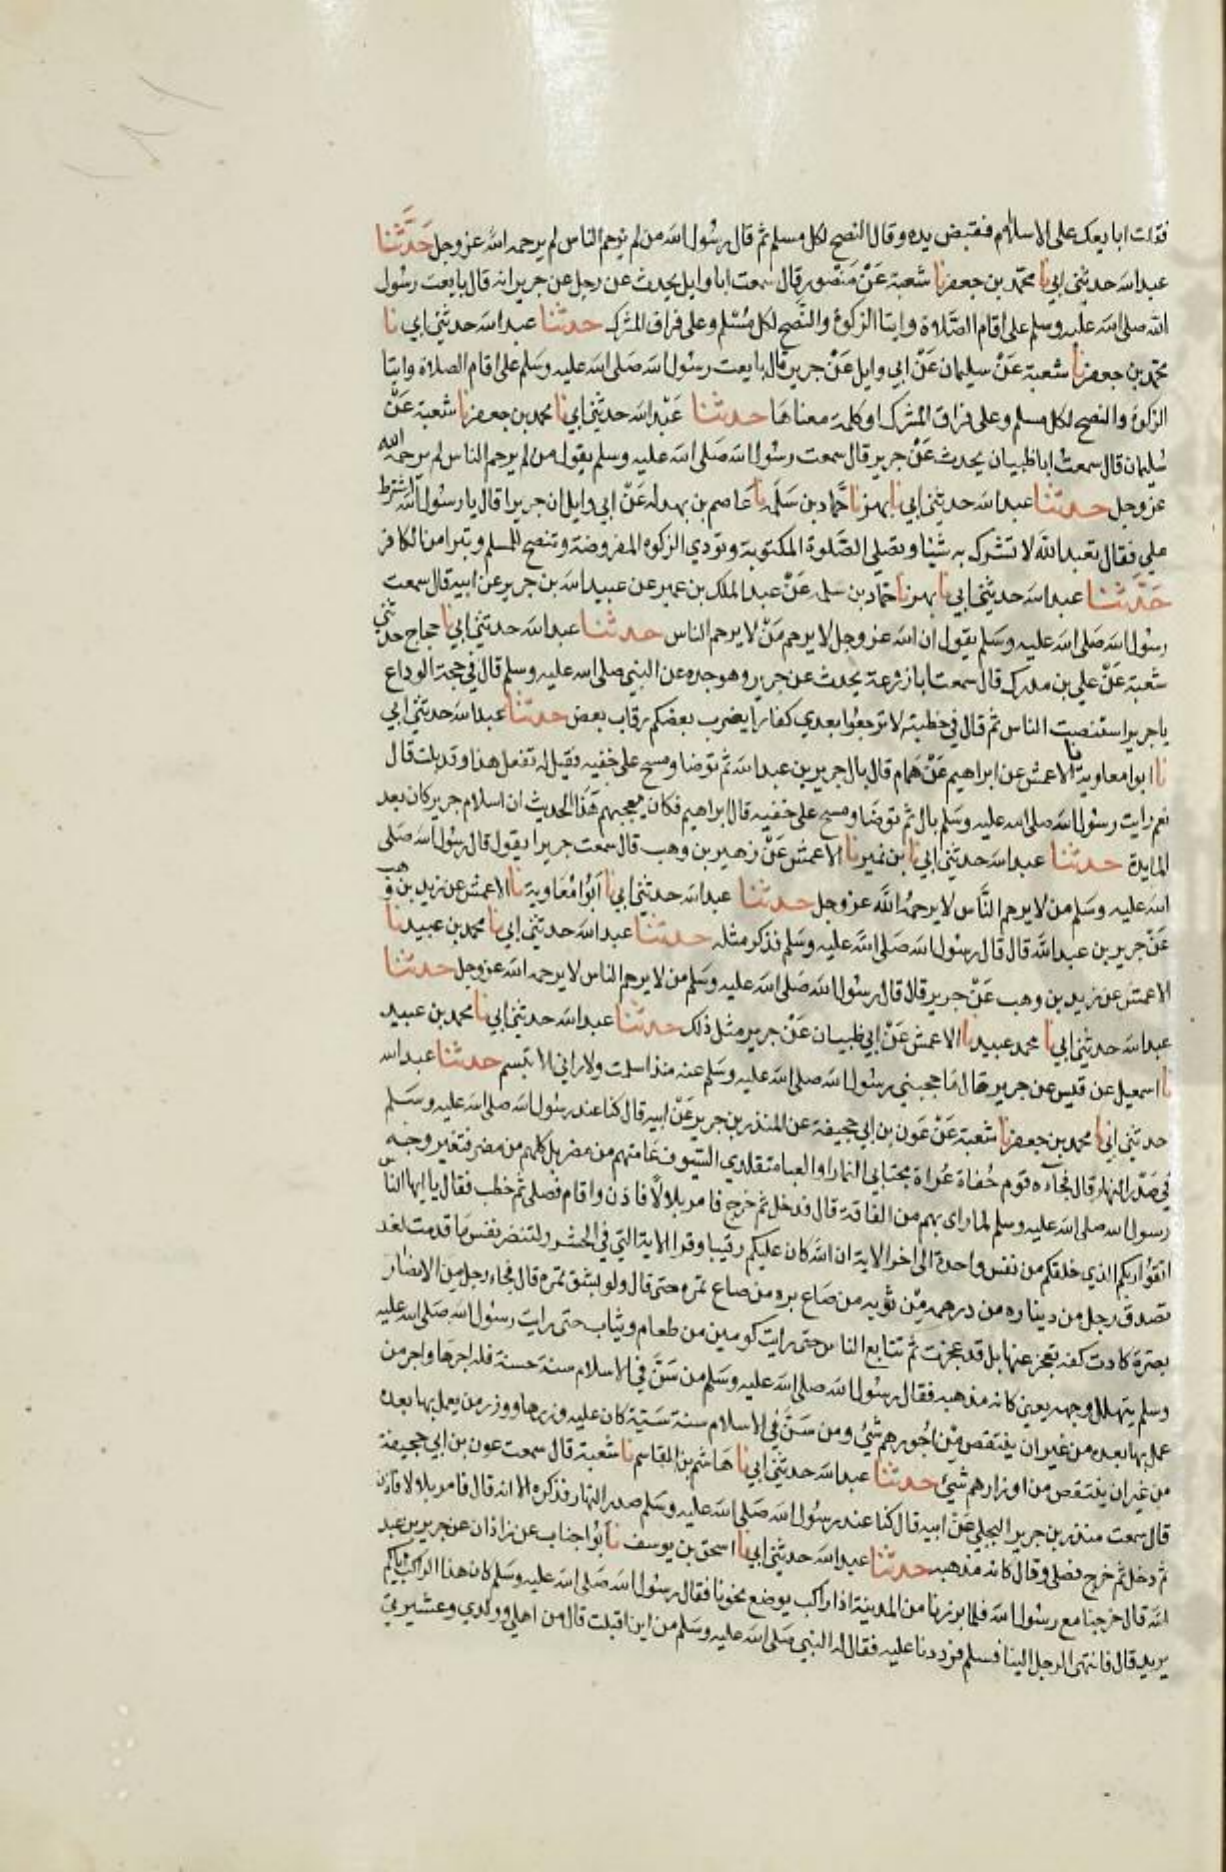 فقلت ابايعك على الاسلام فقبض يده وقال النصح لكل مسلم ثم قال رسول الله من لم يرحم الناس لم يرحمه الله عز وجل حَدَّثنا
عبد الله حدثني ابي نا محمد بن جعفر نا شعبة عَنْ مَنْصور قال سمعت ابا وايل يحدث عن رجل عن جرير انه قال بايعت رسول
الله صلى الله عليه وسلم على اقام الصَّلاة وايتا الزكوة والنَّصح لكل مُسْلم وعلى فراق المشرك حدثنا عبد الله حدثني ابي نا
محمد بن جعفر نا شعبة عَنْ سليمان عَنْ ابي وايل عَنْ جرير قال بايعت رسول الله صَلى الله عليه وسَلم على اقام الصلاة وايتا
الزكوة والنصح لكل مسلم وعلى فراق المشرك او كلمة معناهَا حدثنا عَبْد الله حدثني ابي نا محمد بن جعفر نا شعبة عَنْ
سُليمان قال سمعتُ ابا ظبيان يحدث عَنْ جرير قال سمعت رسُول الله صَلى الله عليه وسلم يقول من لم يرحم الناس لم يرحمه الله
عز وجل حدثنا عبد الله حدثني ابي نا بهز نا حمَّاد بن سَلَمة نا عَاصم بن بهدلة عَنْ ابي وايل ان جريرا قال يا رسول الله اشترط
علي فقال تعبد الله لا تشرك به شيئا وتصلي الصَّلوة المكتوبة وتودي الزكوة المفروضة وتنصح للمسلم وتبرا من الكافر
حَدَّثنا عبد الله حدثني ابي نا بهز نا حمَّاد بن سلمة عَنْ عبد الملك بن عمير عن عبيد الله بن جرير عن ابيه قال سمعت
رسُول الله صَلى الله عليه وسَلم يقول ان الله عز وجل لا يرحم مَنْ لا يرحم الناس حدثنا عبد الله حدثني ابي نا حجاج حدثني
شعبة عَنْ علي بن مدرك قال سمعت ابا زرعة يحدث عن جرير وهو جده عن النبي صلى الله عليه وسلم قال في حجة الوداع
يا جرير استنصت الناس ثم قال في خطبته لا ترجعوا بعدي كفارا يضرب بعضكم رقاب بعض حدثنا عبد الله حدثني ابي
نا ابوا معاوية نا الاعمش عن ابراهيم عَنْ هَمام قال بال جرير بن عبد الله ثم توضا ومسح على خفيه فقيل له تفعل هذا وقد بلت قال
نعم رايت رسول الله صلى الله عليه وسَلم بال ثم توضَا ومسح على خفيه قال ابراهيم فكان يعجبهم هَذا الحديث ان اسلام جرير كان بعد
المايدة حدثنا عبد الله حدثني ابي نا ابن نمير نا الاعمش عَنْ زهير بن وهب قال سمعت جريرا يقول قال رسُول الله صَلى
الله عليه وسَلم من لا يرحم النَّاس لا يرحمهُ الله عز وجل حدثنا عبد الله حدثني ابي نا اَبُوا مُعَاوية نا الاعمش عن زيد بن وهب
عَنْ جرير بن عبد الله قال قال رسُول الله صَلى الله عليه وسَلم فذكر مثله حدثنا عبد الله حدثني ابي نا محمد بن عبيد نا
الاعمش عن زيد بن وهب عَنْ جرير قال قال رسُول الله صَلى الله عليه وسَلم من لا يرحم الناس لا يرحمه الله عز وجل حدثنا
عبد الله حدثني ابي نا محمد عبيد نا الاعمش عَنْ ابي ظبيان عَنْ جرير مثل ذلك حدثنا عبد الله حدثني ابي نا محمد بن عبيد
نا اسمعيل عن قيس عن جرير قال مَا حجبني رسُول الله صلى الله عليه وسَلم عنه منذ اسلمت ولا راني الا تبسم حدثنا عبد الله
حدثني ابي نا محمد بن جعفر نا شعبة عَنْ عَون بن ابي جحيفة عن المنذر بن جرير عَنْ ابيه قال كنا عند رسُول الله صلى الله عليه وسَلم
في صَدْر النهار قال فجآءه قوم حُفاة عُراة مجتابي النمار او العبا متقلدي السّيوف عَامتهم من مضر بل كلهم من مضر فتغير وجه
رسول الله صلى الله عليه وسلم لما راى بهم من الفاقة قال فدخل ثم خرج فامر بلالًا فاذن واقام فصلى ثم خطب فقال يا ايها الناس
اتقوا ربكم الذي خلقكم من نفس واحدة الى اخر الاية ان الله كان عليكم رقيبا وقرا الاية التي في الحشر ولتنضر نفس مَا قدمت لغد
تصدق رجل من ديناره من درهمه مِن ثوبه من صَاع بره من صاع تمره حتى قال ولو بشق تمره قال فجاء رجل من الانصَار
بصرة كادت كفه تعجز عنها بل قد عجزت ثم تتابع الناس حتى رايت كومين من طعام وثياب حتى رايت رسُول الله صَلى الله عليه
وسلم يتهلل وجهه يعني كانه مذهبه فقال رسُول الله صلى الله عليه وسَلم من سَنَّ في الاسلام سنة حسنة فله اجرهَا واجر من
عمل بها بعده من غير ان ينتقص مِن اجورهم شئ ومن سَنَّ في الاسلام سنة سَيّة كان عليه وزرها ووزر من يعمل بها بعده
من غير ان ينتقص من اوزارهم شئ حدثنا عبد الله حدثني ابي نا هَاشم بن القاسم نا شعبة قال سمعت عون بن ابي جحيفة
قال سمعت منذر بن جرير البجلي عَنْ ابيه قال كنا عند رسُول الله صَلى الله عليه وسَلم صدر النهار فذكره الا انه قال فامر بلالا فاذن
ثم دخل ثم خرج فصلى وقال كانه مذهبه حدثنا عبد الله حدثني ابي نا اسحق بن يوسف نا ابُوا جناب عن زاذان عن جرير بن عبد
الله قال خرجنا مع رسُول الله فلما برزنا من المدينة اذا راكب يوضع نحونا فقال رسُول الله صَلى الله عليه وسَلم كان هذا الراكب اياكم
يريد قال فانتهى الرجل الينا فسلم فرددنا عليه فقال له النبي صَلى الله عليه وسَلم من اين اقبلت قال من اهلي وولدي وعشيرتي